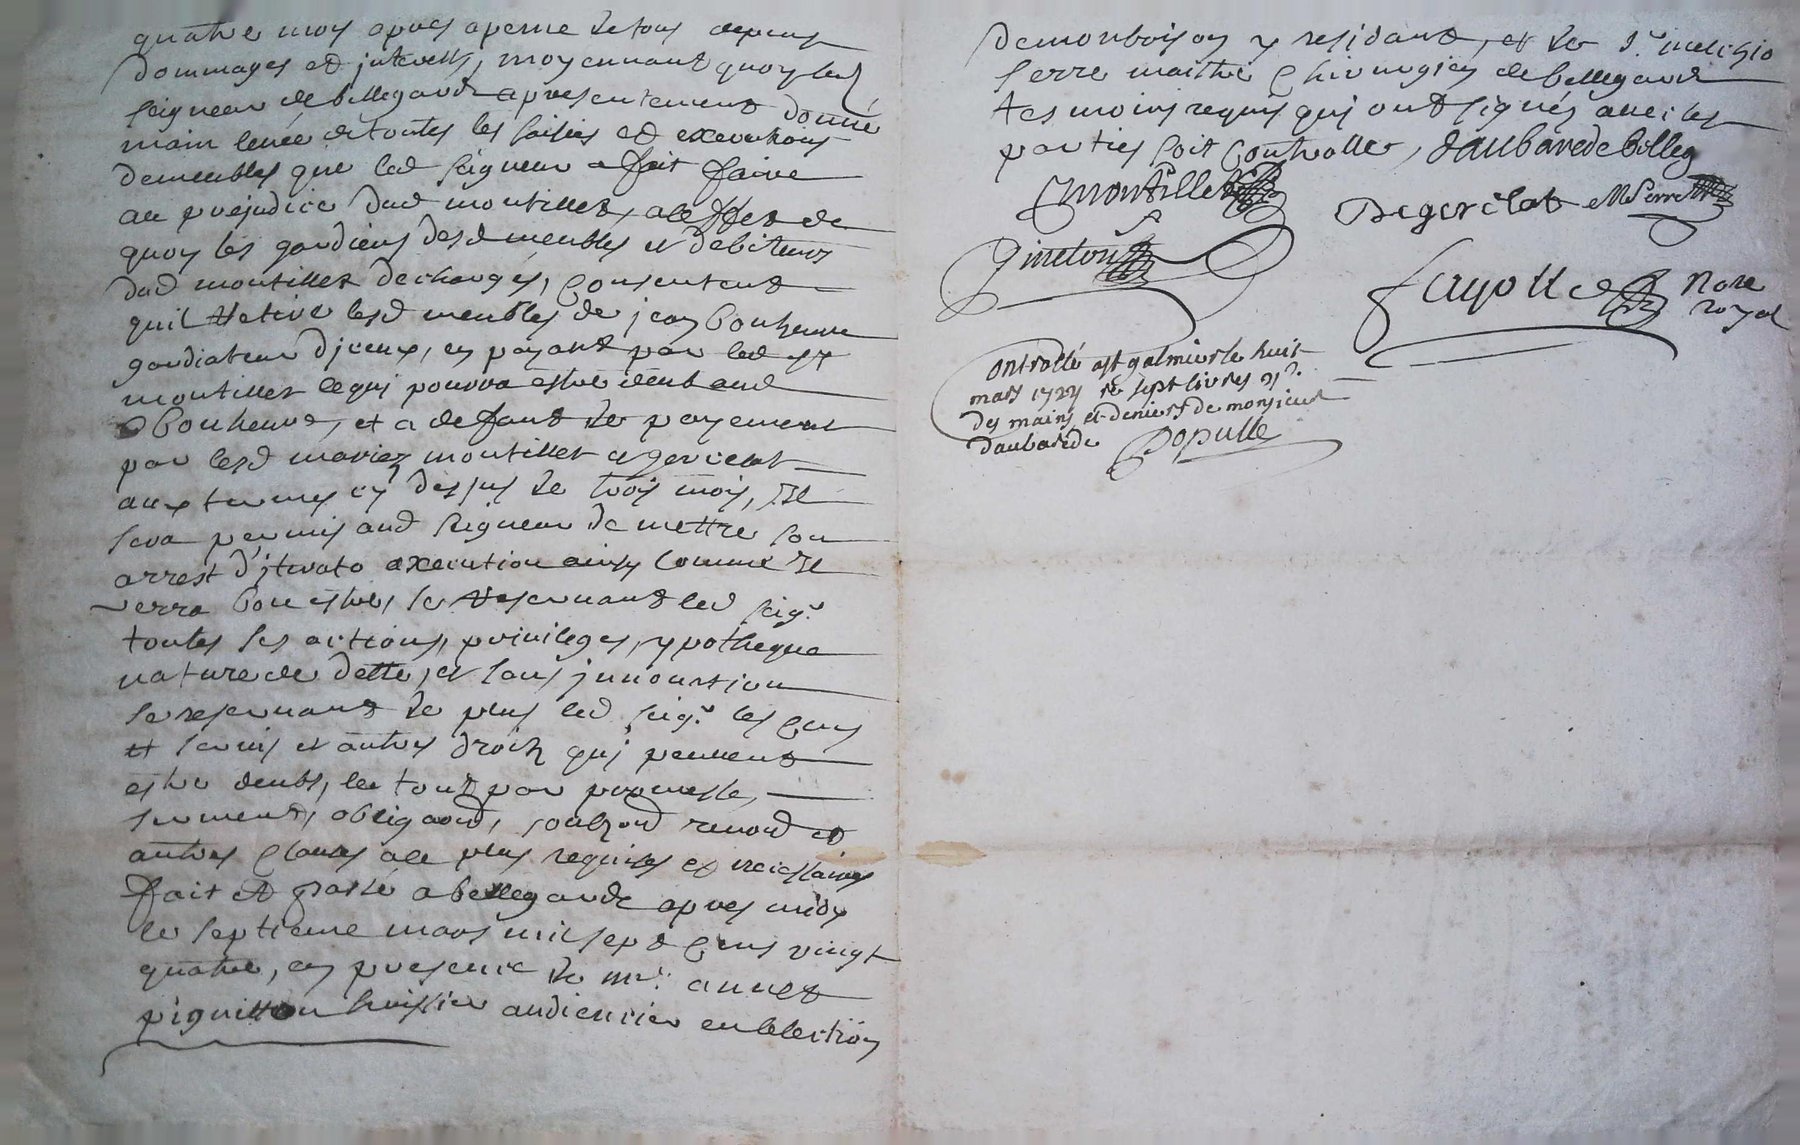 quatre mois apres a peine de tous depens
dommages et jnterests, moyennant quoy led
seigneur de bellegarde a presentement donné
main levée de toutes les saisies et executions
de meubles que led seigneur a fait faire
au prejudice dud montillet, a l'effet de
quoy les gardiens desd meubles et debiteurs
dud montillet dechargés, consentent
quil retire lesd meubles de jean bonheure
gardiateur d'jceux, en payant par led
montillet ce qui pourra estre deub aud
bonheure, et a defaut de payement
par lesd mariez montillet et gericlat
aux termes cy dessus de trois mois, Il
sera permis aud seigneur de mettre son
arrest d'jterato a execution ainsy comme Il
verra bon estre, se reservant led seigr
toutes ses actions, privileges, ypotheque
nature de dette, et sans jnnovation
se reservant de plus led seigr les cens
et servis et autres droits qui peuvent
estre deubs, le tout par promesse,
serment, obligaond, soubzond renond et
autres clauses a ce plus requises et necessaires
fait et passé a bellegarde apres midy
le septieme mars mil sept cens vingt
quatre, en presence de mre annet
pignetton huissier audiencier en l'election
de monbrison y residant, et de sr melchio
serre maitre chirurgien de bellegarde
tesmoins requis qui ont signés avec les
parties soit controllé, daubarede belleg
montillet
Degericlat MSerre
fayolle Nore
royal
Controllé a st galmier le huit
mars 1724 Re sept livres
des mains et deniers de monsieur
daubarede Populle